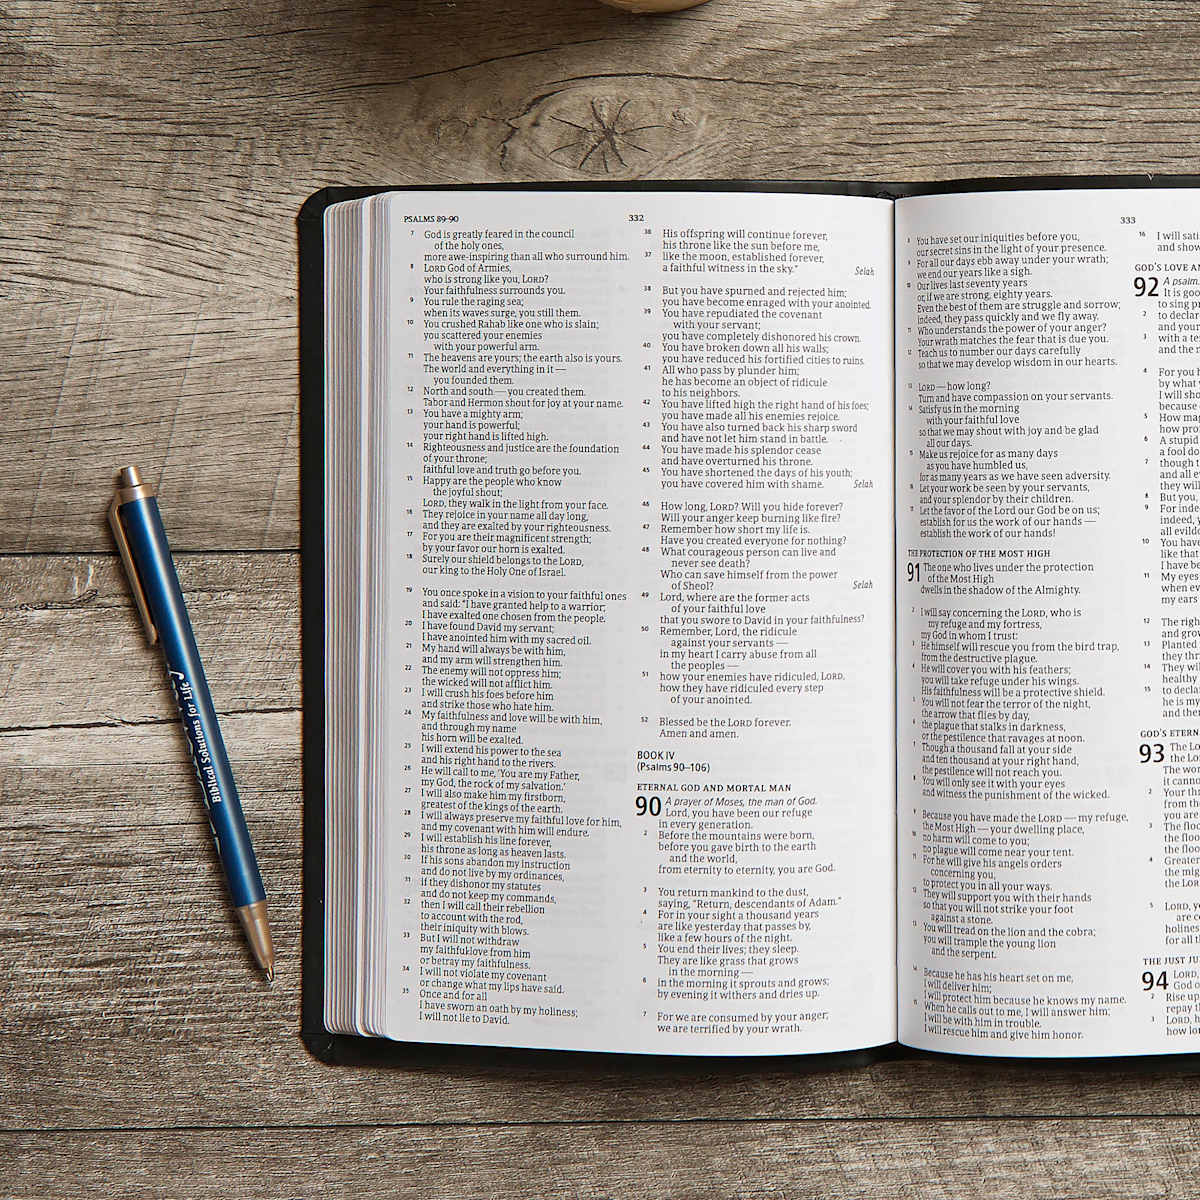 PSALMS 89-90
332
7 God is greatly feared in the council
of the holy ones,
more awe-inspiring than all who surround him.
8 LORD God of Armies,
who is strong like you, LORD?
Your faithfulness surrounds you.
9 You rule the raging sea;
when its waves surge, you still them.
10 You crushed Rahab like one who is slain;
you scattered your enemies
with your powerful arm.
11 The heavens are yours; the earth also is yours.
The world and everything in it —
you founded them.
12 North and south — you created them.
Tabor and Hermon shout for joy at your name.
13 You have a mighty arm;
your hand is powerful;
your right hand is lifted high.
14 Righteousness and justice are the foundation
of your throne;
faithful love and truth go before you.
15 Happy are the people who know
the joyful shout;
LORD, they walk in the light from your face.
16 They rejoice in your name all day long,
and they are exalted by your righteousness.
17 For you are their magnificent strength;
by your favor our horn is exalted.
18 Surely our shield belongs to the LORD,
our king to the Holy One of Israel.
19 You once spoke in a vision to your faithful ones
and said: "I have granted help to a warrior;
I have exalted one chosen from the people.
20 I have found David my servant;
I have anointed him with my sacred oil.
21 My hand will always be with him,
and my arm will strengthen him.
22 The enemy will not oppress him;
the wicked will not afflict him.
23 I will crush his foes before him
and strike those who hate him.
24 My faithfulness and love will be with him,
and through my name
his horn will be exalted.
25 I will extend his power to the sea
and his right hand to the rivers.
26 He will call to me, 'You are my Father,
my God, the rock of my salvation.'
27 I will also make him my firstborn,
greatest of the kings of the earth.
28 I will always preserve my faithful love for him,
and my covenant with him will endure.
29 I will establish his line forever,
his throne as long as heaven lasts.
30 If his sons abandon my instruction
and do not live by my ordinances,
31 if they dishonor my statutes
and do not keep my commands,
32 then I will call their rebellion
to account with the rod,
their iniquity with blows.
33 But I will not withdraw
my faithful love from him
or betray my faithfulness.
34 I will not violate my covenant
or change what my lips have said.
35 Once and for all
I have sworn an oath by my holiness;
I will not lie to David.
36 His offspring will continue forever,
his throne like the sun before me,
37 like the moon, established forever,
a faithful witness in the sky." Selah
38 But you have spurned and rejected him;
you have become enraged with your anointed.
39 You have repudiated the covenant
with your servant;
you have completely dishonored his crown.
40 You have broken down all his walls;
you have reduced his fortified cities to ruins.
41 All who pass by plunder him;
he has become an object of ridicule
to his neighbors.
42 You have lifted high the right hand of his foes;
you have made all his enemies rejoice.
43 You have also turned back his sharp sword
and have not let him stand in battle.
44 You have made his splendor cease
and have overturned his throne.
45 You have shortened the days of his youth;
you have covered him with shame. Selah
46 How long, LORD? Will you hide forever?
Will your anger keep burning like fire?
47 Remember how short my life is.
Have you created everyone for nothing?
48 What courageous person can live and
never see death?
Who can save himself from the power
of Sheol? Selah
49 Lord, where are the former acts
of your faithful love
that you swore to David in your faithfulness?
50 Remember, Lord, the ridicule
against your servants —
in my heart I carry abuse from all
the peoples —
51 how your enemies have ridiculed, LORD,
how they have ridiculed every step
of your anointed.
52 Blessed be the LORD forever.
Amen and amen.
BOOK IV
(Psalms 90–106)
ETERNAL GOD AND MORTAL MAN
90 A prayer of Moses, the man of God.
Lord, you have been our refuge
in every generation.
2 Before the mountains were born,
before you gave birth to the earth
and the world,
from eternity to eternity, you are God.
3 You return mankind to the dust,
saying, "Return, descendants of Adam."
4 For in your sight a thousand years
are like yesterday that passes by,
like a few hours of the night.
5 You end their lives; they sleep.
They are like grass that grows
in the morning —
6 in the morning it sprouts and grows;
by evening it withers and dries up.
7 For we are consumed by your anger;
we are terrified by your wrath.
333
8 You have set our iniquities before you,
our secret sins in the light of your presence.
9 For all our days ebb away under your wrath;
we end our years like a sigh.
10 Our lives last seventy years
or, if we are strong, eighty years.
Even the best of them are struggle and sorrow;
indeed, they pass quickly and we fly away.
11 Who understands the power of your anger?
Your wrath matches the fear that is due you.
12 Teach us to number our days carefully
so that we may develop wisdom in our hearts.
13 LORD — how long?
Turn and have compassion on your servants.
14 Satisfy us in the morning
with your faithful love
so that we may shout with joy and be glad
all our days.
15 Make us rejoice for as many days
as you have humbled us,
for as many years as we have seen adversity.
16 Let your work be seen by your servants,
and your splendor by their children.
17 Let the favor of the Lord our God be on us;
establish for us the work of our hands —
establish the work of our hands!
THE PROTECTION OF THE MOST HIGH
91 The one who lives under the protection
of the Most High
dwells in the shadow of the Almighty.
2 I will say concerning the LORD, who is
my refuge and my fortress,
my God in whom I trust:
3 He himself will rescue you from the bird trap,
from the destructive plague.
4 He will cover you with his feathers;
you will take refuge under his wings.
His faithfulness will be a protective shield.
5 You will not fear the terror of the night,
the arrow that flies by day,
6 the plague that stalks in darkness,
or the pestilence that ravages at noon.
7 Though a thousand fall at your side
and ten thousand at your right hand,
the pestilence will not reach you.
8 You will only see it with your eyes
and witness the punishment of the wicked.
9 Because you have made the LORD — my refuge,
the Most High — your dwelling place,
10 no harm will come to you;
no plague will come near your tent.
11 For he will give his angels orders
concerning you,
to protect you in all your ways.
12 They will support you with their hands
so that you will not strike your foot
against a stone.
13 You will tread on the lion and the cobra;
you will trample the young lion
and the serpent.
14 Because he has his heart set on me,
I will deliver him;
I will protect him because he knows my name.
15 When he calls out to me, I will answer him;
I will be with him in trouble.
I will rescue him and give him honor.
16 I will
and show
GOD'S LOVE
92 A psalm.
It is
to sing
2 to
and your
3 with a
and the
4 For you
by what
I will
because
5 How
how
6 A stupid
a fool
7 though
and all
they will
8 But you,
9 For
indeed,
all
10 You have
like that
I have
11 My eyes
when
my ears
12 The
and
13 Planted
they
14 They
healthy
15 to
he is my
and
GOD'S
93 The
the
The
it
2 Your
from
you are
3 The
the
the
4 Greater
the
the
5 LORD,
are
for all
THE JUST
94 LORD,
God
2 Rise up
repay
3 LORD,
how
Biblical Solutions for Life